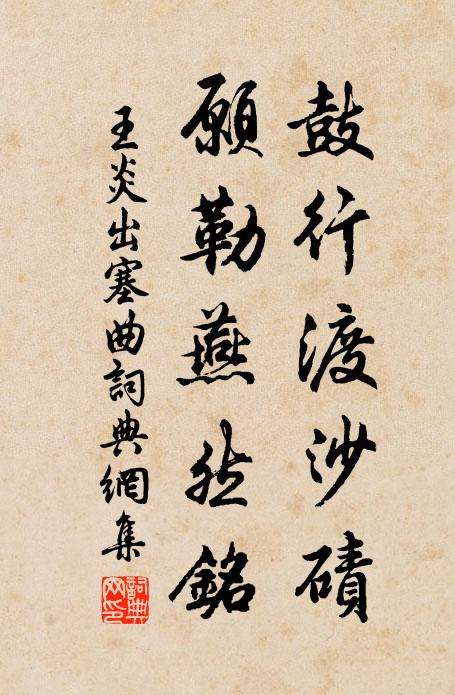 鼓行渡沙磧
願勒燕然銘
王炎出塞曲詞典網集
詞典
网印